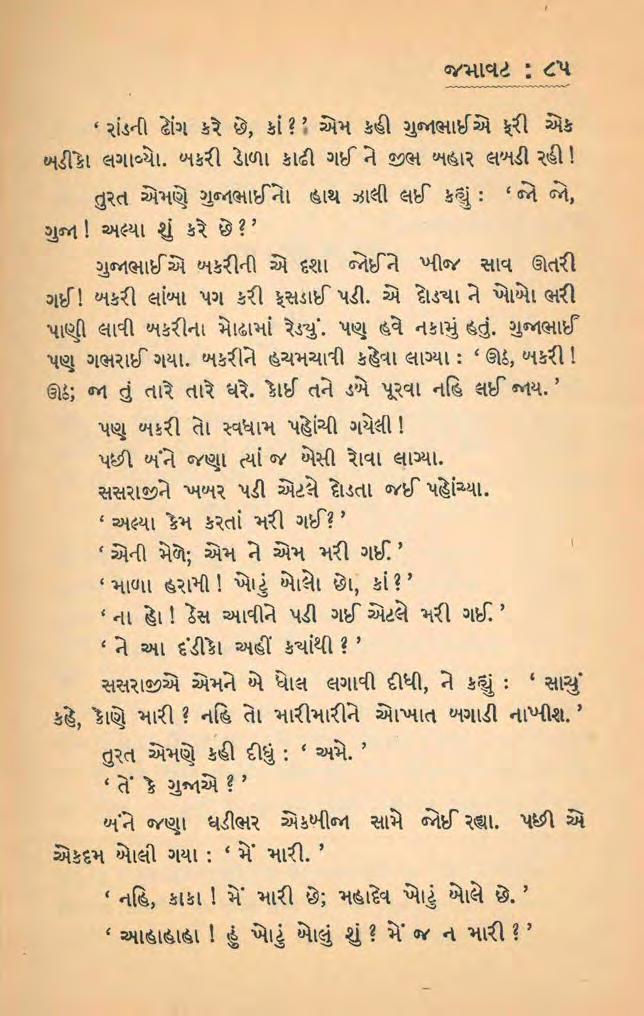 જમાવટ : ૮૫
‘ રાંડની ઢોંગ કરે છે, કાં ? ’ એમ કહી ગુજાભાઈએ ફરી એક
ખડીકો લગાવ્યો. બકરી ડોળા કાઢી ગઈ ને જીભ બહાર લબડી રહી !
તુરત એમણે ગુજાભાઈનો હાથ ઝાલી લઈ કહ્યું : ‘ જો જો,
ગુજા ! અલ્યા શું કરે છે ? ’
ગુજાભાઈએ બકરીની એ દશા જોઈને ખીજ સાવ ઊતરી
ગઈ! બકરી લાંબા પગ કરી ફસડાઈ પડી. એ દોડ્યા ને ખોબો ભરી
પાણી લાવી બકરીના મોઢામાં રેડ્યું. પણ હવે નકામું હતું. ગુજાભાઈ
પણ ગભરાઈ ગયા. બકરીને હચમચાવી કહેવા લાગ્યા : ‘ ઊઠ, બકરી !
ઊઠ; જા તું તારે તારે ઘરે. કોઈ તને ડબે પૂરવા નહિ લઈ જાય. ’
પણ બકરી તો સ્વધામ પહોંચી ગયેલી !
પછી બંને જણા ત્યાં જ બેસી રોવા લાગ્યા.
સસરાજીને ખબર પડી એટલે દોડતા જઈ પહોંચ્યા.
‘ અલ્યા કેમ કરતાં મરી ગઈ? ’
‘ એની મેળે; એમ ને એમ મરી ગઈ. ’
‘ માળા હરામી ! ખોટું બોલો છો, કાં ? ’
‘ ના હો ! ઠેસ આવીને પડી ગઈ એટલે મરી ગઈ. ’
‘ ને આ દંડીકો અહીં ક્યાંથી ? ’
સસરાજીએ એમને બે ધોલ લગાવી દીધી, ને કહ્યું : ‘ સાચું
કહે, કોણે મારી ? નહિ તો મારીમારીને ઓખાત બગાડી નાખીશ. ’
તુરત એમણે કહી દીધું : ‘ અમે. ’
‘ તેં કે ગુજાએ ? ’
બંને જણા ઘડીભર એકબીજા સામે જોઈ રહ્યા. પછી એ
એકદમ બોલી ગયા : ‘ મેં મારી. ’
‘ નહિ, કાકા ! મેં મારી છે; મહાદેવ ખોટું બોલે છે. ’
‘ આહાહાહા ! હું ખોટું બોલું શું ? મેં જ ન મારી ? ’